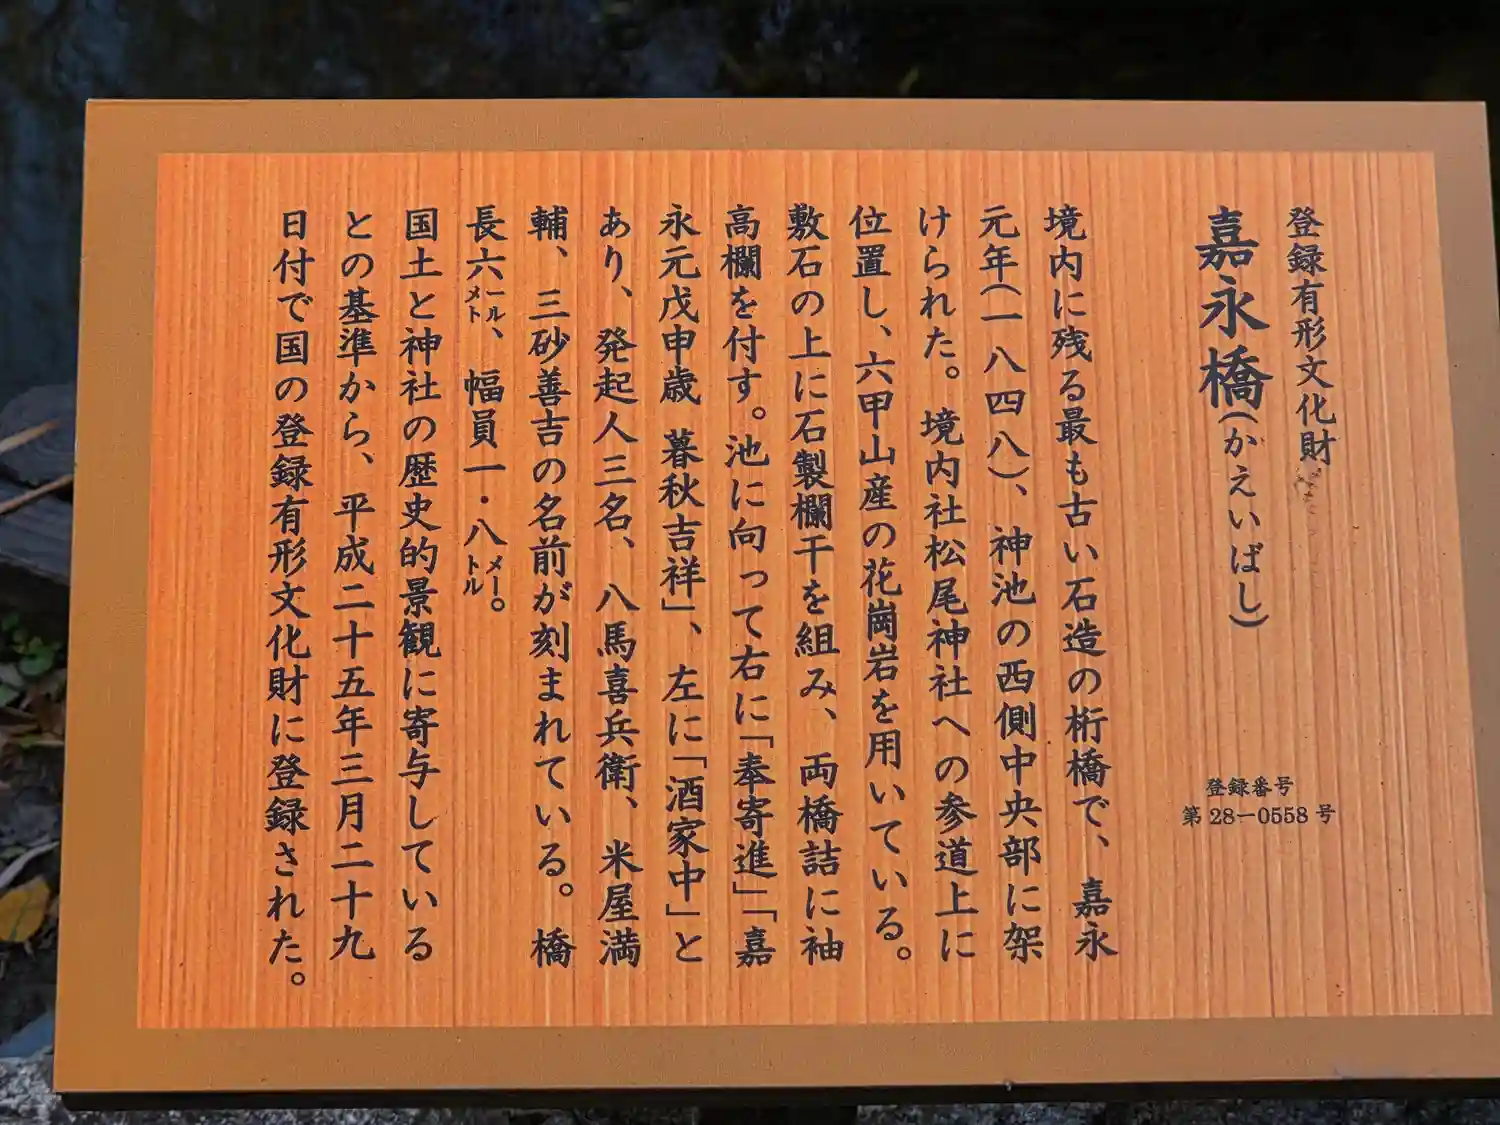 登録有形文化財
嘉永橋(かえいばし)
登録番号
第28－0558号
境内に残る最も古い石造の桁橋で、嘉永
元年(一八四八)、神池の西側中央部に架
けられた。境内社松尾神社への参道上に
位置し、六甲山産の花崗岩を用いている。
敷石の上に石製欄干を組み、両橋詰に袖
高欄を付す。池に向って右に「奉寄進」「嘉
永元戊申歳 暮秋吉祥」、左に「酒家中」と
あり、発起人三名、八馬喜兵衛、米屋満
輔、三砂善吉の名前が刻まれている。橋
長六メートル、幅員一・八メートル。
国土と神社の歴史的景観に寄与している
との基準から、平成二十五年三月二十九
日付で国の登録有形文化財に登録された。